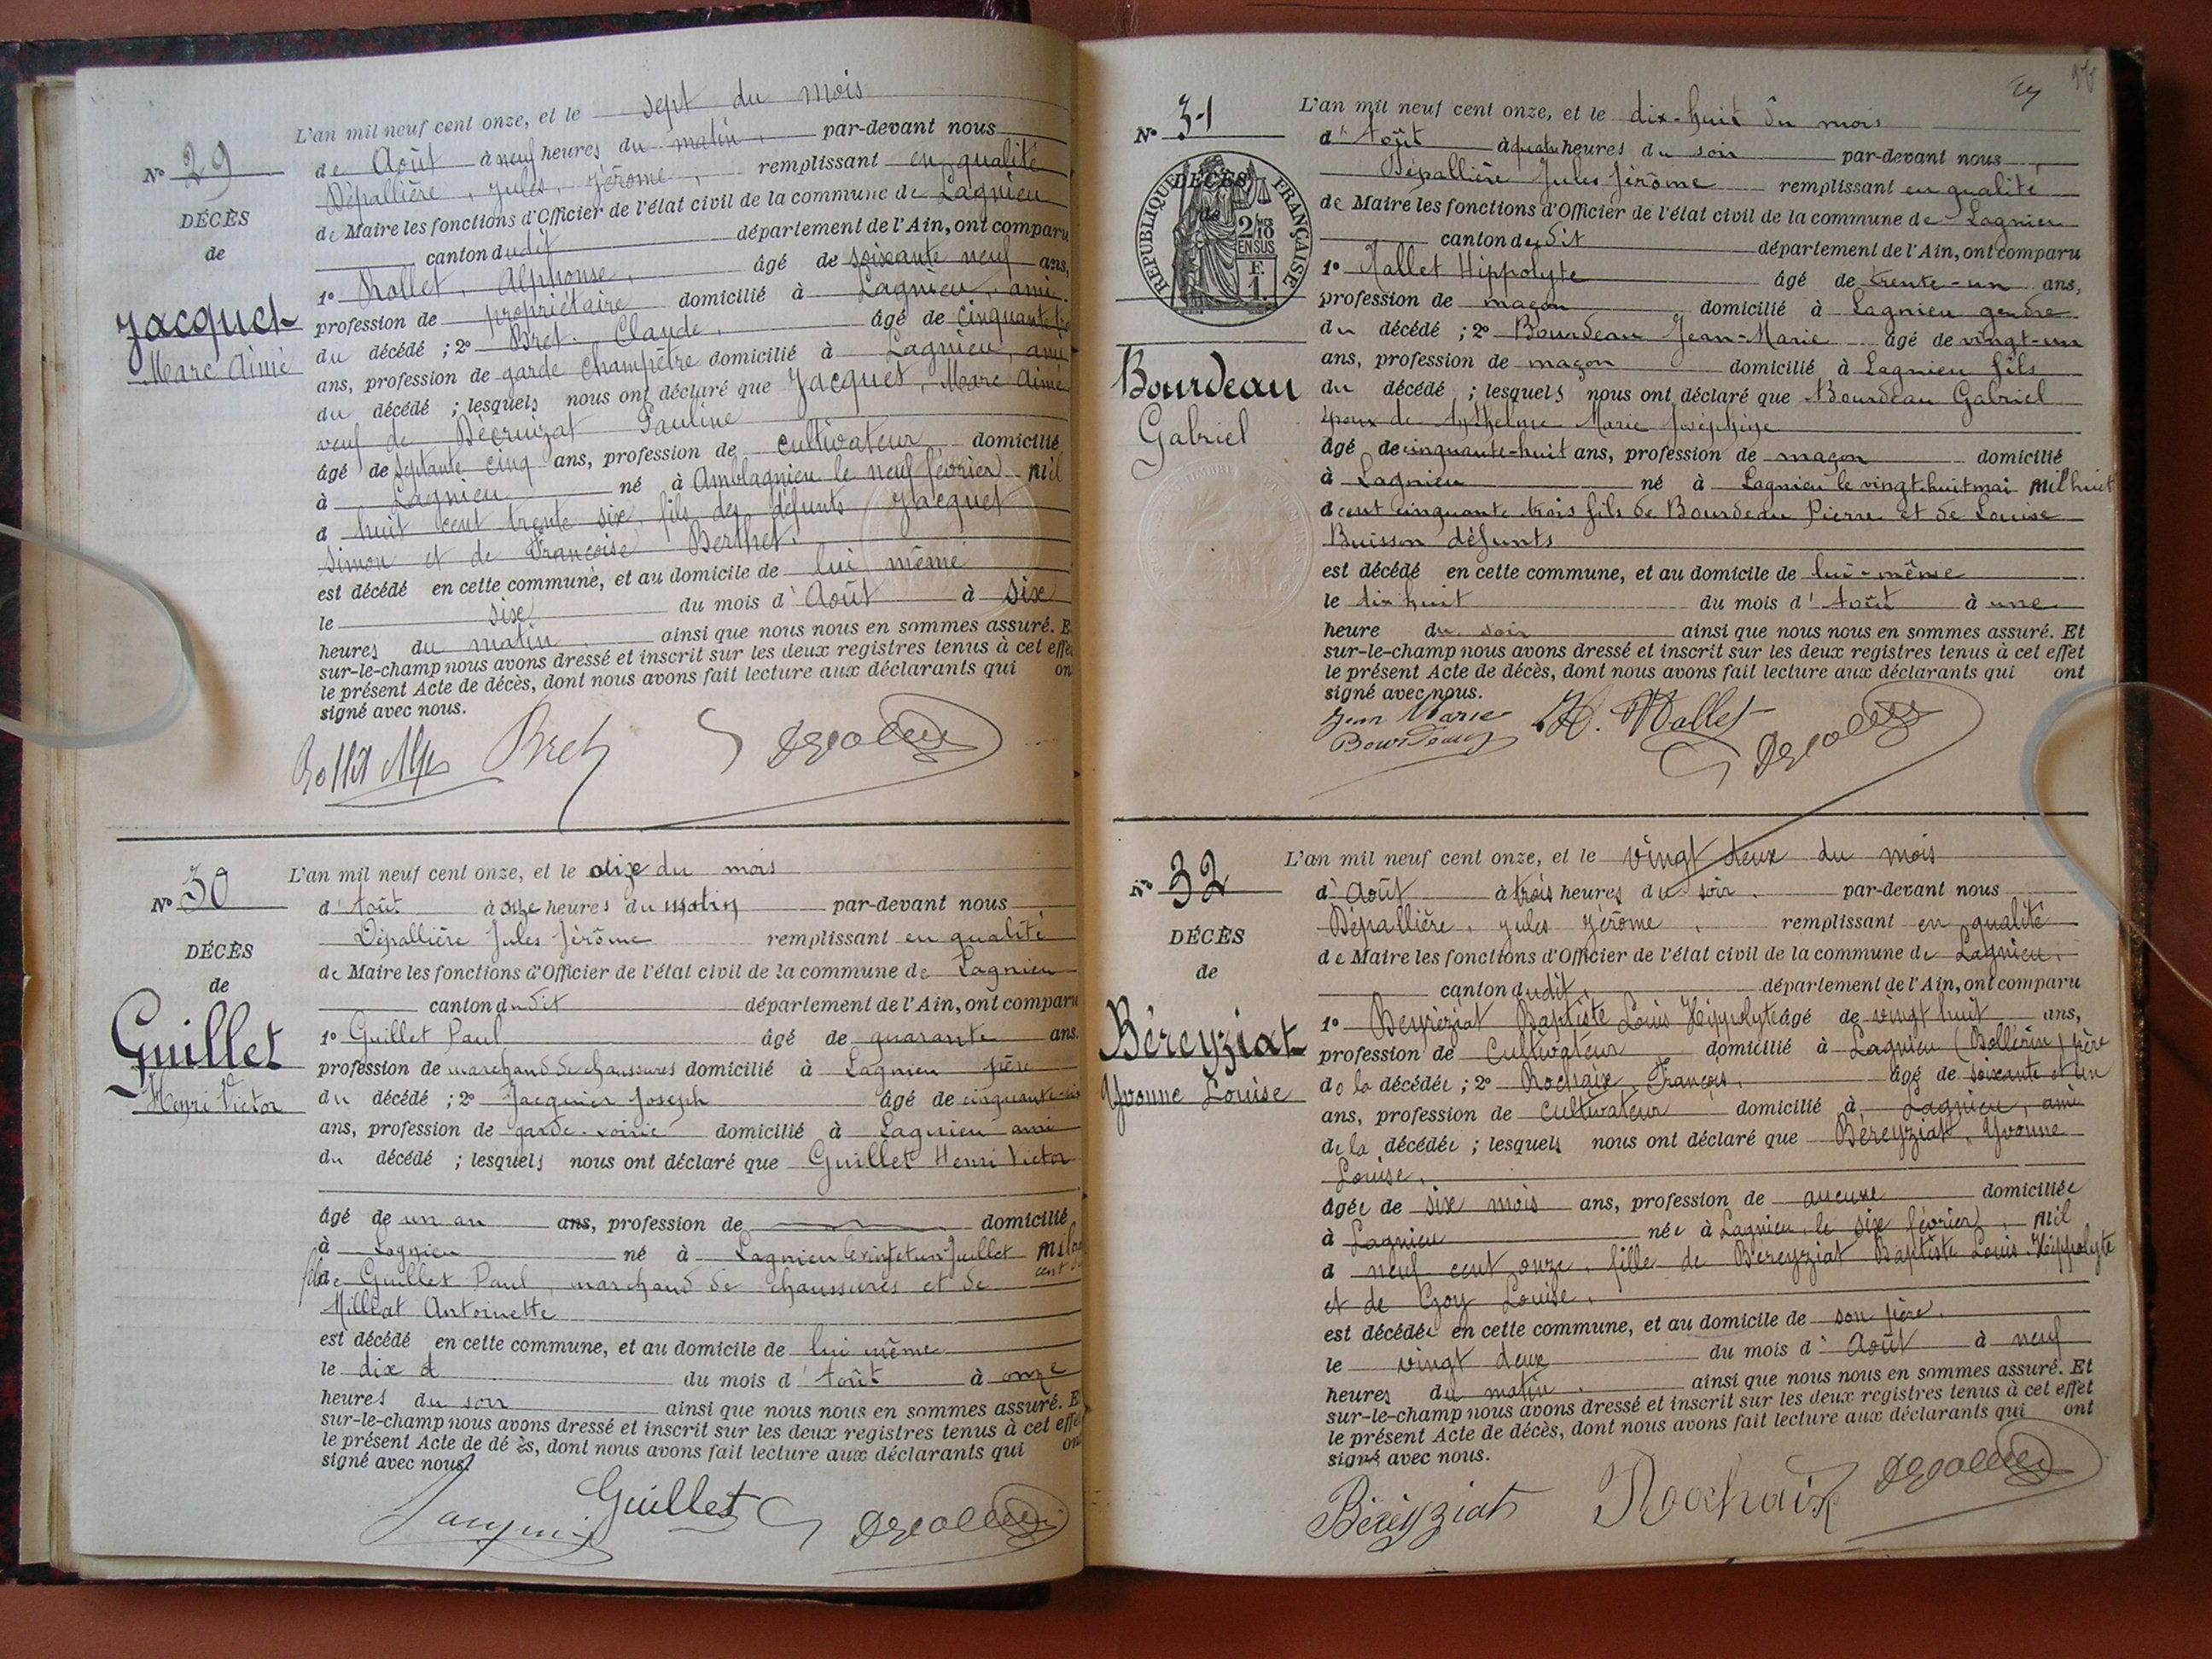 L'an mil neuf cent onze, et le sept du mois
N° 29
de Août à neuf heures du matin, par-devant nous
Dépallière, Jules, Jérôme, remplissant en qualité
DÉCÈS
de Maire les fonctions d'Officier de l'état civil de la commune de Lagnieu
de
canton dudit département de l'Ain, ont comparu
1° Rollet, Alphonse, âgé de soixante neuf ans,
Jacquet
profession de propriétaire domicilié à Lagnieu, ami
Marc Aimé
du décédé ; 2° Bret Claude, âgé de cinquante
ans, profession de garde champêtre domicilié à Lagnieu, ami
du décédé ; lesquels nous ont déclaré que Jacquet, Marc Aimé
veuf de Décruizat Pauline
âgé de septante cinq ans, profession de cultivateur domicilié
à Lagnieu né à Amblagnieu le neuf février mil
d huit cent trente six, fils des défunts Jacquet
Simon et de Françoise Berthet.
est décédé en cette commune, et au domicile de lui même
le six du mois d'Août à six
heures du matin. ainsi que nous nous en sommes assuré. E
sur-le-champ nous avons dressé et inscrit sur les deux registres tenus à cet effe
le présent Acte de décès, dont nous avons fait lecture aux déclarants qui on
signé avec nous.
Bret
L'an mil neuf cent onze, et le dix du mois
N° 30
d'Août à onze heures du matin par-devant nous
Dépallière Jules Jérôme remplissant en qualité
DÉCÈS
de Maire les fonctions d'Officier de l'état civil de la commune de Lagnieu
de
canton dudit département de l'Ain, ont comparu
Guillet
1° Guillet Paul âgé de quarante ans.
profession de marchand de chaussures domicilié à Lagnieu père
Henri Victor
du décédé ; 2° Jacquier Joseph âgé de cinquante-six
ans, profession de garde-voirie domicilié à Lagnieu ami
du décédé ; lesquels nous ont déclaré que Guillet Henri Victor
âgé de un an ans, profession de domicilié
à Lagnieu né à Lagnieu le vingt et un Juillet mil
fils de Guillet Paul, marchand de chaussures et de cent
Milléat Antoinette
est décédé en cette commune, et au domicile de lui même
le dix d du mois d'Août à onze
heures du soir ainsi que nous nous en sommes assuré. E
sur-le-champ nous avons dressé et inscrit sur les deux registres tenus à cet effe
le présent Acte de dé ès, dont nous avons fait lecture aux déclarants qui on
signé avec nous.
Guillet
L'an mil neuf cent onze, et le dix-huit du mois
N° 31
d'Août à quatre heures du soir par-devant nous
DÉCÈS
Dépallière Jules Jérôme remplissant en qualité
RÉPUBLIQUE FRANÇAISE
de
2/10 MES
EN SUS
F.
1.
de Maire les fonctions d'Officier de l'état civil de la commune de Lagnieu
canton dudit département de l'Ain, ont comparu
1° Mallet Hippolyte âgé de trente-un ans,
profession de maçon domicilié à Lagnieu gendre
du décédé ; 2° Bourdeau Jean-Marie âgé de vingt-un
ans, profession de maçon domicilié à Lagnieu fils
Bourdeau
du décédé ; lesquels nous ont déclaré que Bourdeau Gabriel
Gabriel
époux de Anthelme Marie Joséphine
âgé de cinquante-huit ans, profession de maçon domicilié
à Lagnieu né à Lagnieu le vingt-huit mai mil huit
d cent cinquante trois fils de Bourdeau Pierre et de Louise
Buisson défunts
est décédé en cette commune, et au domicile de lui-même
le dix huit du mois d'Août à une
heure du soir ainsi que nous nous en sommes assuré. Et
sur-le-champ nous avons dressé et inscrit sur les deux registres tenus à cet effet
le présent Acte de décès, dont nous avons fait lecture aux déclarants qui ont
signé avec nous.
Jean Marie H. Mallet
Bourdeau
L'an mil neuf cent onze, et le vingt deux du mois
N° 32
d'Août à trois heures du soir. par-devant nous
Dépallière, Jules Jérôme, remplissant en qualité
DÉCÈS
de Maire les fonctions d'Officier de l'état civil de la commune de Lagnieu.
de
canton dudit, département de l'Ain, ont comparu
Béreyziat
1° Béreyziat Baptiste Louis Hippolyte âgé de vingt huit ans,
profession de Cultivateur domicilié à Lagnieu (Bollérin) père
Yvonne Louise
de la décédée ; 2° Rochaix, François, âgé de soixante et un
ans, profession de cultivateur domicilié à Lagnieu, ami
de la décédée ; lesquels nous ont déclaré que Béreyziat, Yvonne
Louise,
âgée de six mois ans, profession de aucune domiciliée
à Lagnieu née à Lagnieu, le six février, mil
d neuf cent onze, fille de Béreyziat Baptiste Louis Hippolyte
et de Goy Louise.
est décédée en cette commune, et au domicile de son père.
le vingt deux du mois d'Août à neuf
heures du matin. ainsi que nous nous en sommes assuré. Et
sur-le-champ nous avons dressé et inscrit sur les deux registres tenus à cet effet
le présent Acte de décès, dont nous avons fait lecture aux déclarants qui ont
signé avec nous.
Béreyziat Rochaix